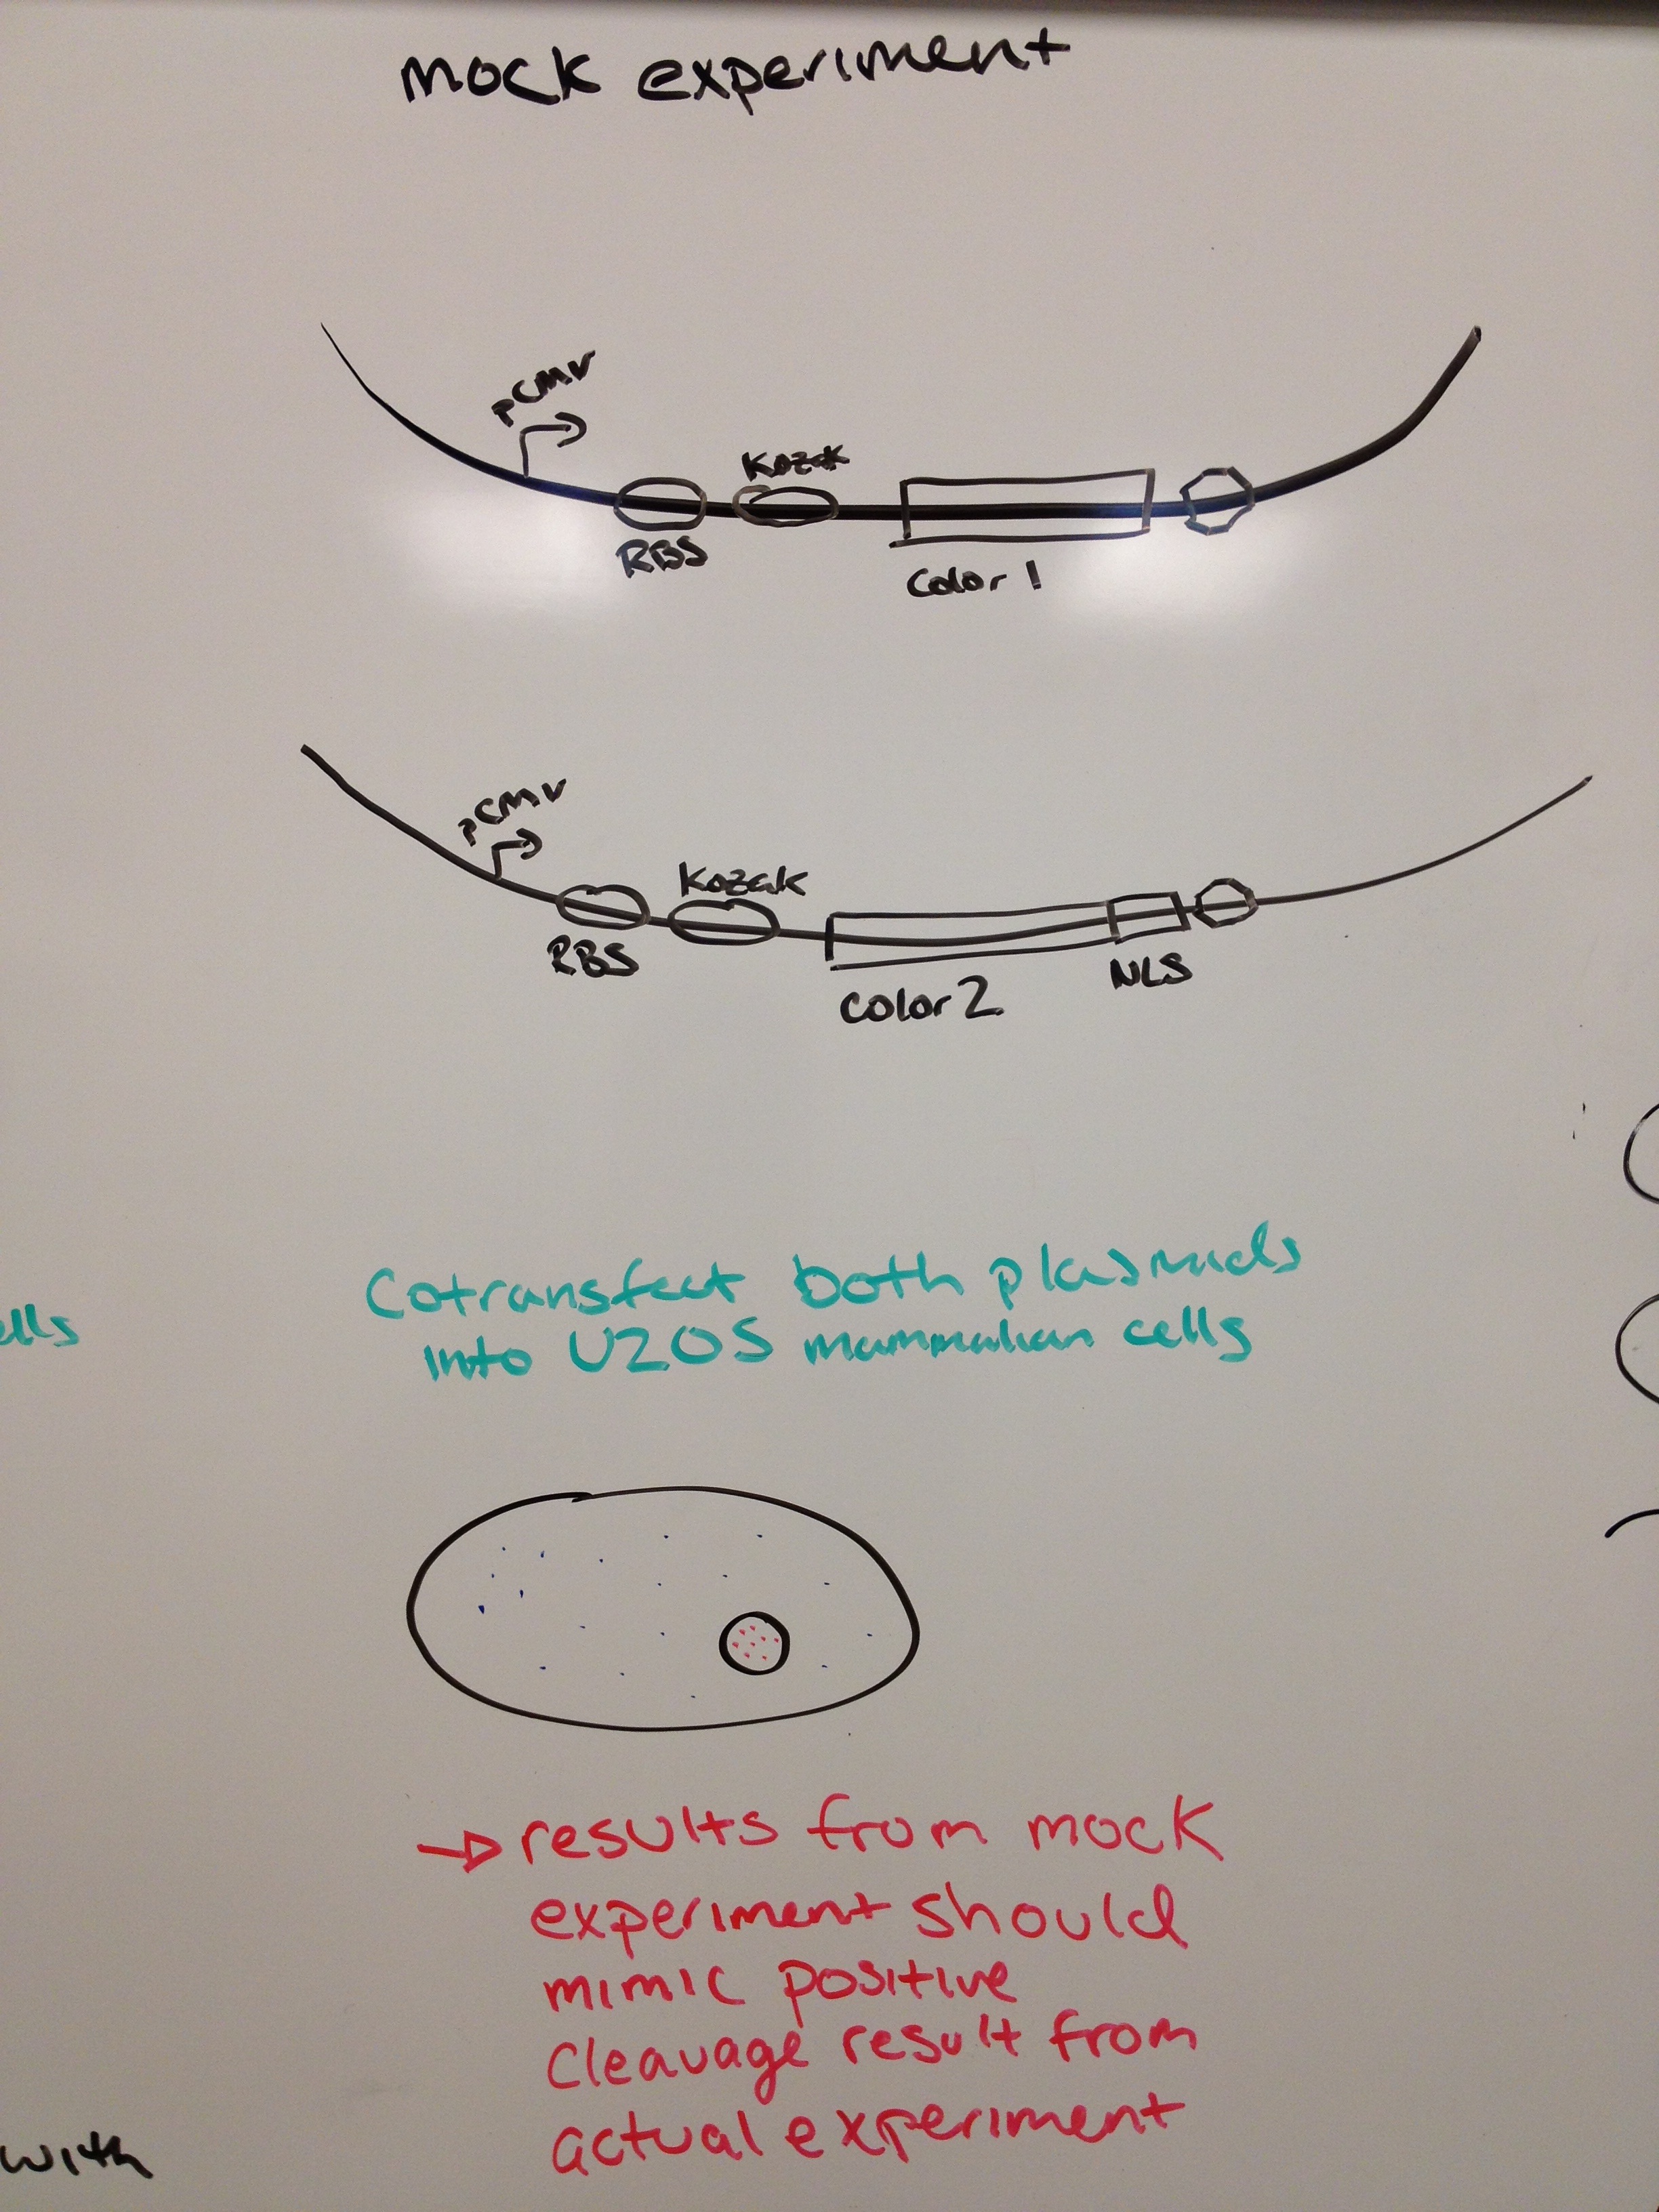 mock experiment
pCMV
Kozak
RBS
Color 1
pCMV
Kozak
RBS
NLS
Color 2
Cotransfect both plasmids
into U2OS mammalian cells
ells
→ results from mock
experiment should
mimic positive
cleavage result from
actual experiment
with